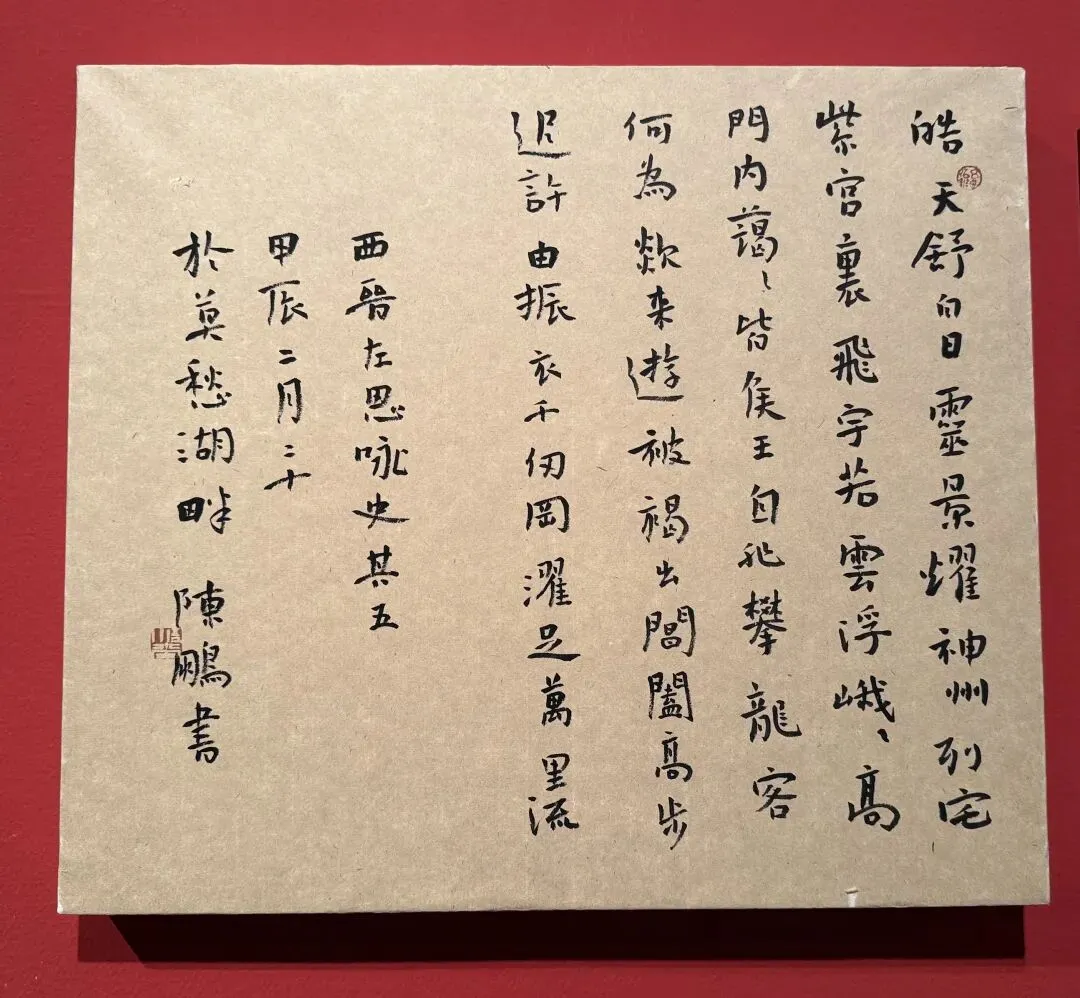 皓天舒白日靈景耀神州列宅
紫宮裏飛宇若雲浮峨〻高
門內藹〻皆侯王自非攀龍客
何為欻來遊被褐出閶闔高步
追許由振衣千仞岡濯足萬里流
西晉左思咏史其五
甲辰二月二十
於莫愁湖畔 陳鵬書